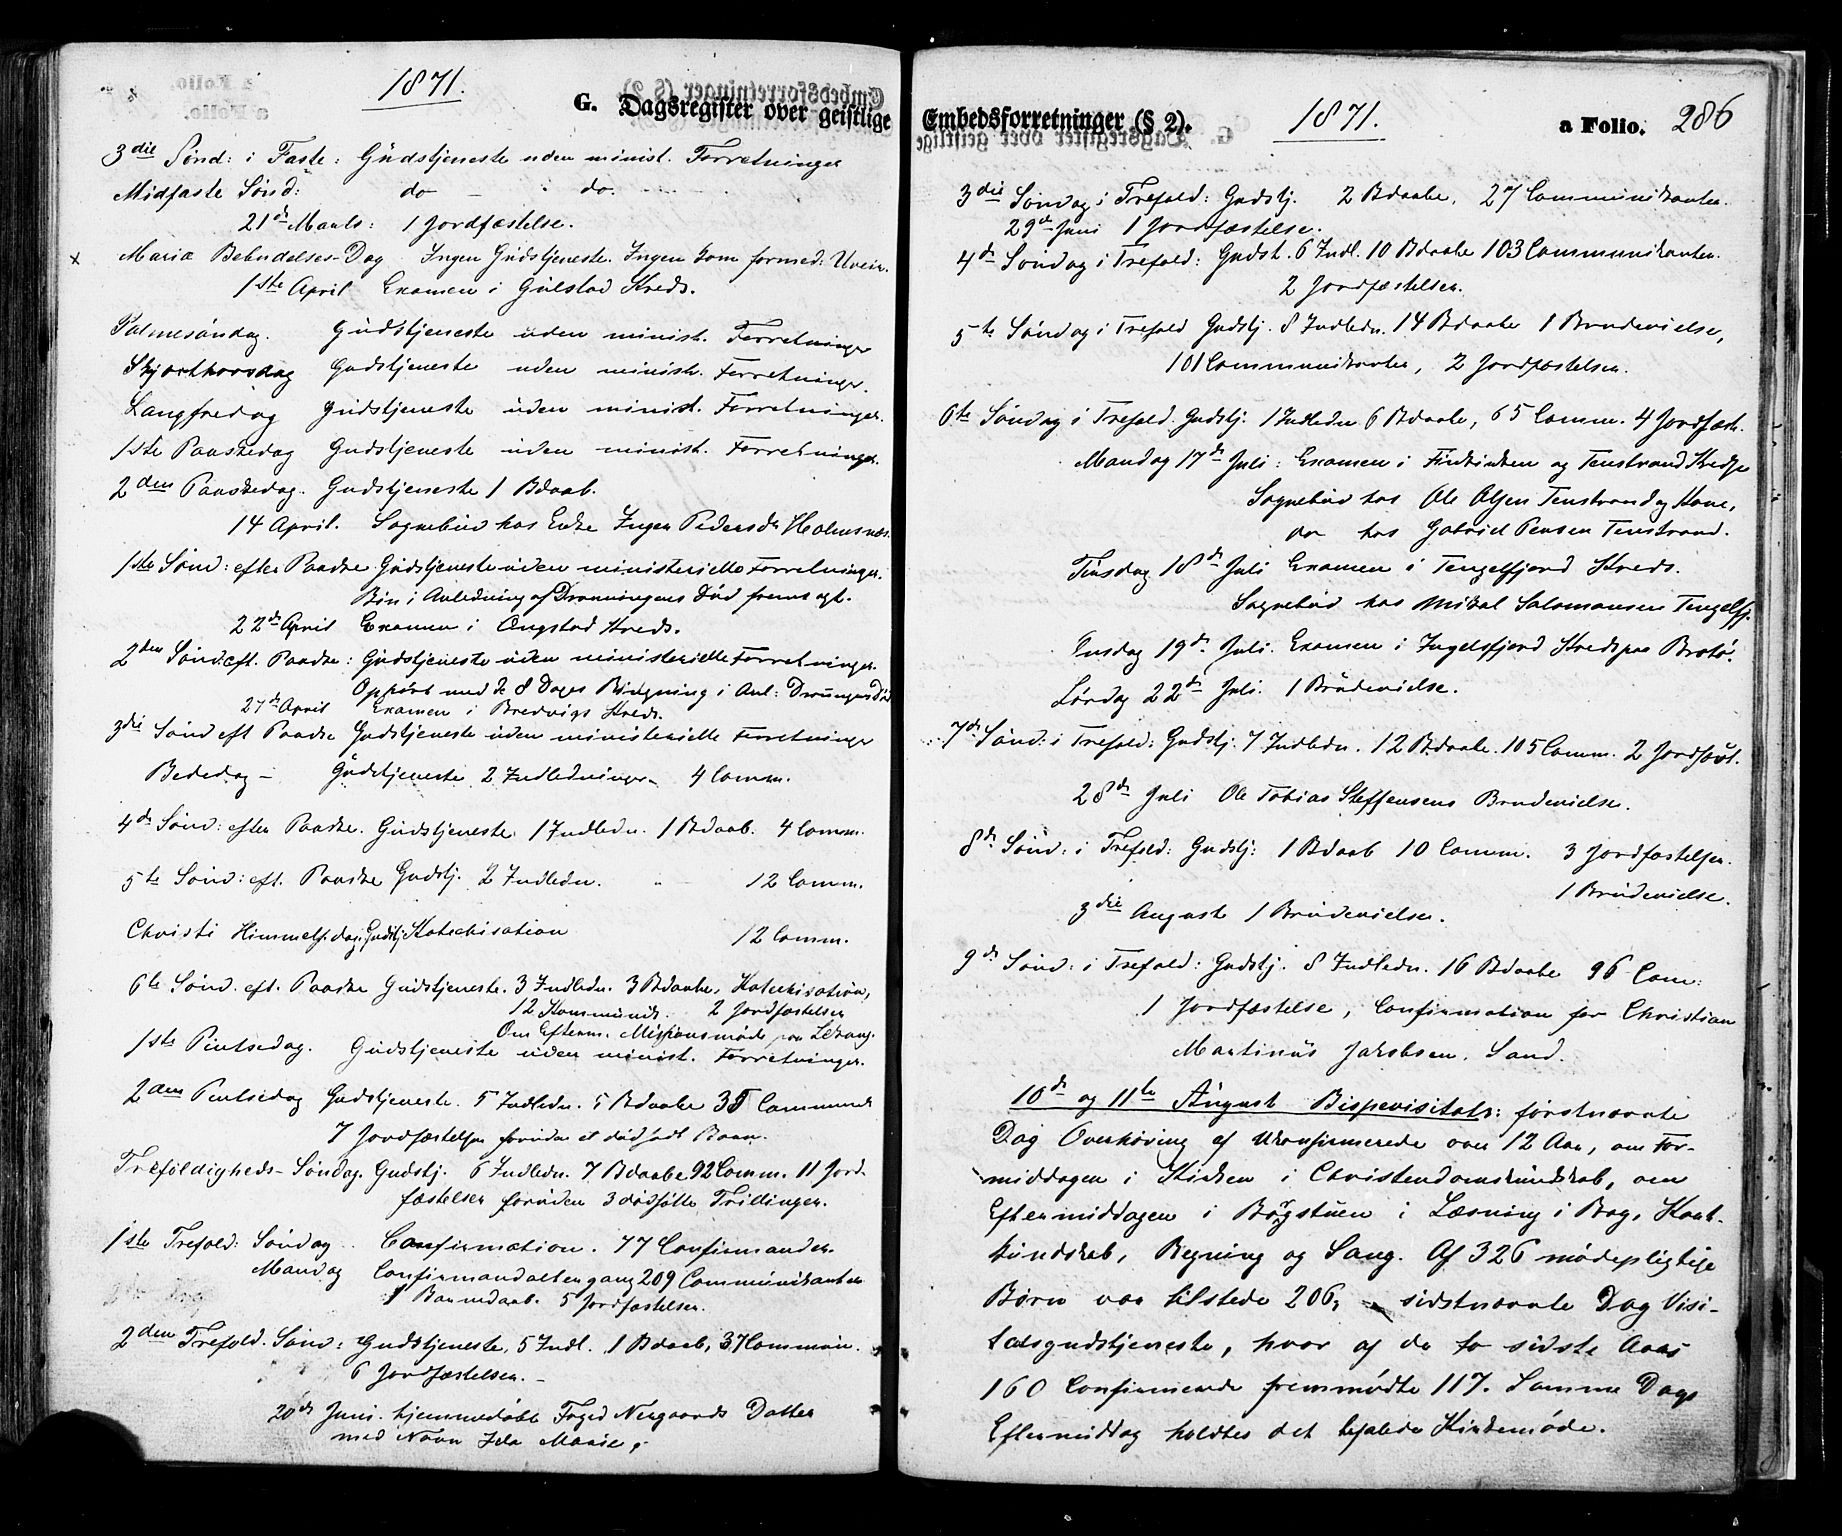 1871.
G. Dagsregister over geistlige
3die Sønd: i Faste: Gudstjeneste uden minist. Forretninger
Midfaste Sønd: do — do.
21de Marts: 1 Jordfæstelse.
x Maria Bebudelses-Dag Ingen Gudstjeneste. Ingen kom formed: Uveir.
1ste April Examen i Gulstad Kreds.
Palmesøndag. Gudstjeneste uden minist. Forretninger
Skjærthorsdag Gudstjeneste uden minist. Forretninger.
Langfredag Gudstjeneste uden minist. Forretninger.
1ste Paaskedag Gudstjeneste uden minist. Forretninger.
2den Paaskedag. Gudstjeneste 1 Bdaab.
14 April. Sognebud hos Enke Inger Pedersdr Holmsnæs.
1ste Sønd: efter Paaske Gudstjeneste uden ministerielle Forretninger.
Bøn i Anledning af Dronningens Død fremsagt.
22de April Examen i Ongstad Kreds.
2den Sønd: eft. Paaske: Gudstjeneste uden ministerielle Forretninger.
Ophørt med de 8 Dages Ringning i Anl: Dronnigens Død
27de April Examen i Bredvigs Kreds.
3die Sønd eft Paaske Gudstjeneste uden ministerielle Forretninger
Bededag – Gudstjeneste 2 Indledninger 4 Comm.
4de Sønd: efter Paaske. Gudstjeneste. 1 Indledn. 1 Bdaab. 4 Comm.
5te Sønd: eft. Paaske Gudstj. 2 Indledn. " 12 Comm.
Christi Himmelf.dag. Gudstj. Katechisation 12 Comm.
6te Sønd. eft. Paaske Gudstjeneste. 3 Indledn. 3 Bdaabe, Katechisation,
12 Kommunik. 2 Jordfæstelser
Om Efterm. Missionsmøde paa Lekang.
1ste Pintsedag. Gudstjeneste uden minist. Forretninger.
2den Pintsedag Gudstjeneste. 5 Indledn. 5 Bdaabe 35 Communik
7 Jordfæstelser foruden et dødfødt Barn.
Trefoldigheds-Søndag. Gudstj. 6 Indledn. 7 Bdaabe 92 Comm. 11 Jord-
fæstelser foruden 3 dødfødte Trillinger.
1ste Trefold: Søndag Confirmation. 77 Confirmander.
Mandag Confirmandaltergang 209 Communikanter
1 Barnedaab. 5 Jordfæstelser.
2den Trefold. Sønd: Gudstjeneste, 5 Indl. 1 Bdaab, 37 Commun.
6 Jordfæstelser. –
20de Juni. hjemmedøbt Foged Neergaards Datter
med Navn Ida Marie.
Embedsforretninger (§ 2). 1871. a Folio. 286
3die Søndag i Trefold: Gudstj. 2 Bdaabe. 27 Communikanter.
29de Juni 1 Jordfæstelse.
4de Søndag i Trefold: Gudst. 6 Indl. 10 Bdaabe 103 Communikanter.
2 Jordfæstelser.
5te Søndag i Trefold Gudstj. 8 Indledn. 14 Bdaabe 1 Brudevielse,
101 Communikanter, 2 Jordfæstelser.
6te Søndag i Trefold. Gudstj. 1 Indledn 6 Bdaabe, 65 Comm. 4 Jordfæst.
Mandag 17de Juli: Examen i og Tenstrand Kredse
Sognebud hos Ole Olsen Tenstrand og Kone,
do hos Gabriel Pensen Tenstrand.
Tirsdag 18de Juli Examen i Tengelfjord Kreds.
Sognebud hos Mikal Salomonsen Tengelfj.
Onsdag 19de Juli. Examen i Ingelsfjord Kreds paa Brotø.
Lørdag 22de Juli. 1 Brudevielse.
7de Sønd: i Trefold: Gudstj. 7 Indledn. 12 Bdaabe. 105 Comm. 2 Jordfæst.
28de Juli Ole Tobias Steffensens Brudevielse.
8de Sønd: i Trefold: Gudstj: 1 Bdaab 10 Comm. 3 Jordfæstelser.
1 Brudevielse.
3die August 1 Brudevielse.
9de Sønd: i Trefold: Gudstj. 8 Indledn. 16 Bdaabe 96 Com:
1 Jordfæstelse, Confirmation for Christian
Martinus Jakobsen. Sand.
10de og 11te August Bispevisitats: førstnævnte
Dag Overhøring af Ukonfirmerede over 12 Aar, om For-
middagen i Kirken i Christendomskundskab, om
Eftermiddagen i Bøgstuen i Læsning i Bog, Kart-
kundskab, Regning og Sang. Af 326 mødepligtige
Børn var tilstede 206, sidstnævnte Dag Visi-
tatsgudstjeneste, hvor af de to sidste Aars
160 Confirmerede fremmødte 117. Samme Dags
Eftermiddag holdtes det befalede Kirkemøde.